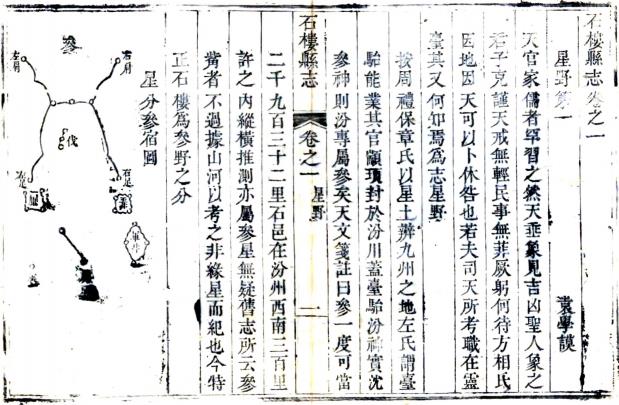 石樓縣志卷之一
星野第一
袁學謨
天官家儒者罕習之然天垂象見吉凶聖人象之
君子克謹天戒無輕民事無菲厥躬何待方相氏
因地因天可以卜休咎也若夫司天所考職在靈
臺其又何知焉爲志星野
按周禮保章氏以星土辨九州之地左氏謂臺
駘能業其官顓頊封於汾川蓋臺駘汾神實沈
參神則汾專屬參矣天文箋註曰參一度可當
石樓縣志
卷之一
星野
一
二千九百三十二里石邑在汾州西南三百里
許之內縱橫推測亦屬參星無疑舊志所云參
觜者不過據山河以考之非緣星而紀也今特
正石樓爲參野之分
星分參宿圖
參
右肩
左肩
伐
右足
左足